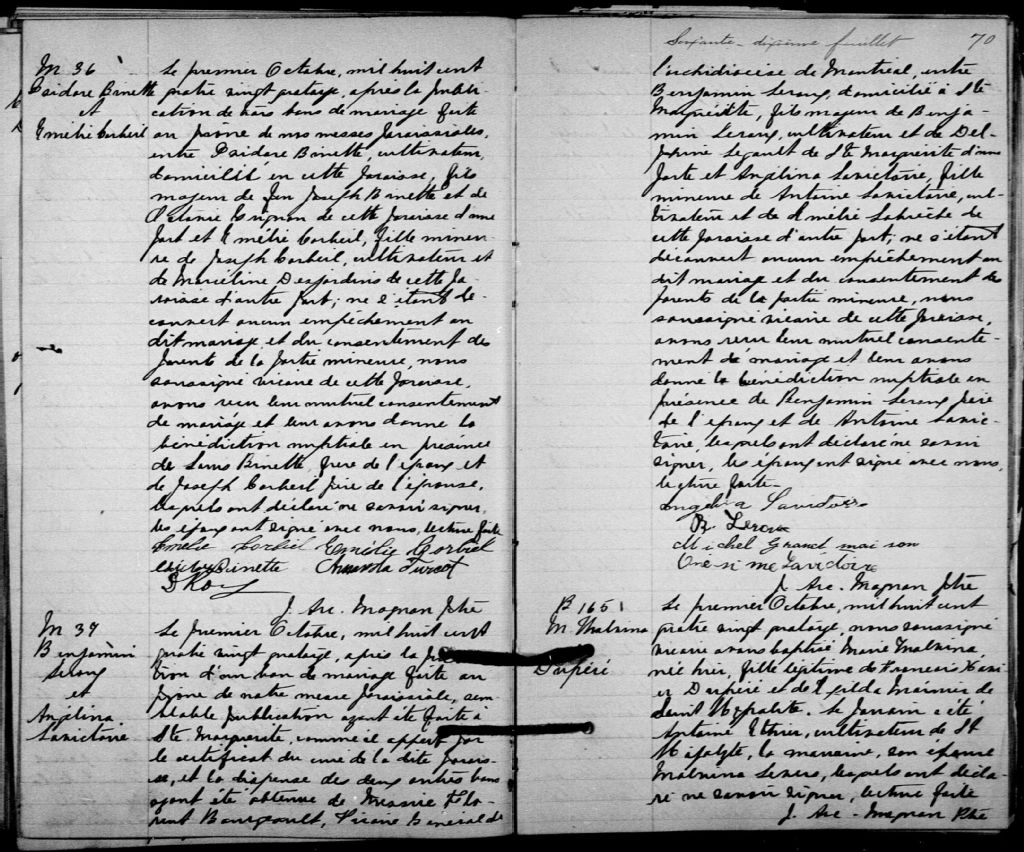 M 36
Isidore Binette
et
Emélie Corbeil
Le premier Octobre, mil huit cent
quatre vingt quatorze, après la publi-
cation de trois bans de mariage faite
au prône de nos messes paroissiales,
entre Isidore Binette, cultivateur,
domicilié en cette paroisse, fils
majeur de feu Joseph Binette et de
Octavie Grignon de cette paroisse d'une
part et Emélie Corbeil, fille mineu-
re de Joseph Corbeil, cultivateur et
de Marceline Desjardins de cette pa
roisse d'autre part; ne s'étant dé-
couvert aucun empêchement au
dit mariage et du consentement des
parents de la partie mineure, nous
soussigné vicaire de cette paroisse,
avons reçu leur mutuel consentement
de mariage et leur avons donné la
bénédiction nuptiale en présence
de Louis Binette, frère de l'époux et
de Joseph Corbeil père de l'épouse,
lesquels ont déclaré ne savoir signer,
les époux ont signé avec nous, lecture faite
Emélie Corbeil Emélie Corbeil
Binette Turcot
D Roy
J. Arc. Magnan Ptre
M 37
Benjamin
Leroux
et
Angélina
Lavictoire
Le premier Octobre, mil huit cent
quatre vingt quatorze, après la
tion d'un ban de mariage faite au
prône de notre messe paroissiale, sem
blable publication ayant été faite à
Ste Marguerite, comme il appert par
le certificat du curé de la dite parois-
se, et la dispense des deux autres bans
ayant été obtenue de Messire Flo-
rent Bourgeault, Vicaire Général de
Soixante-dixième feuillet 70
l'archidiocèse de Montréal, entre
Benjamin Leroux, domicilié à Ste
Marguerite, fils majeur de Benja-
min Leroux, cultivateur et de Del-
phine Legault de Ste Marguerite d'une
part et Angélina Lavictoire, fille
mineure de Antoine Lavictoire, cul-
tivateur et de Emélie Labrèche de
cette paroisse d'autre part; ne s'étant
découvert aucun empêchement au
dit mariage et du consentement des
parents de la partie mineure, nous
soussigné vicaire de cette paroisse,
avons reçu leur mutuel consente-
ment de mariage et leur avons
donné la bénédiction nuptiale en
présence de Benjamin Leroux père
de l'époux et de Antoine Lavic-
toire, lesquels ont déclaré ne savoir
signer, les époux ont signé avec nous,
lecture faite-
Angelina Lavictoire
B Leroux
Michel Grand maison
Onésime Lavictoire
J. Arc. Magnan Ptre
B 165
M. Malvina
Dupéré
Le premier Octobre, mil huit cent
quatre vingt quatorze, nous soussigné
vicaire avons baptisé Marie Malvina,
née hier, fille légitime de Francois Xavi
er Dupéré et de Exilda Marinier de
Saint Hypolite. Le parrain a été
Antoine Ethier, cultivateur de St
Hypolyte, la marraine, son épouse
Malvina Lesieur, lesquels ont décla-
ré ne savoir signer, lecture faite
J. Arc-Magnan Ptre